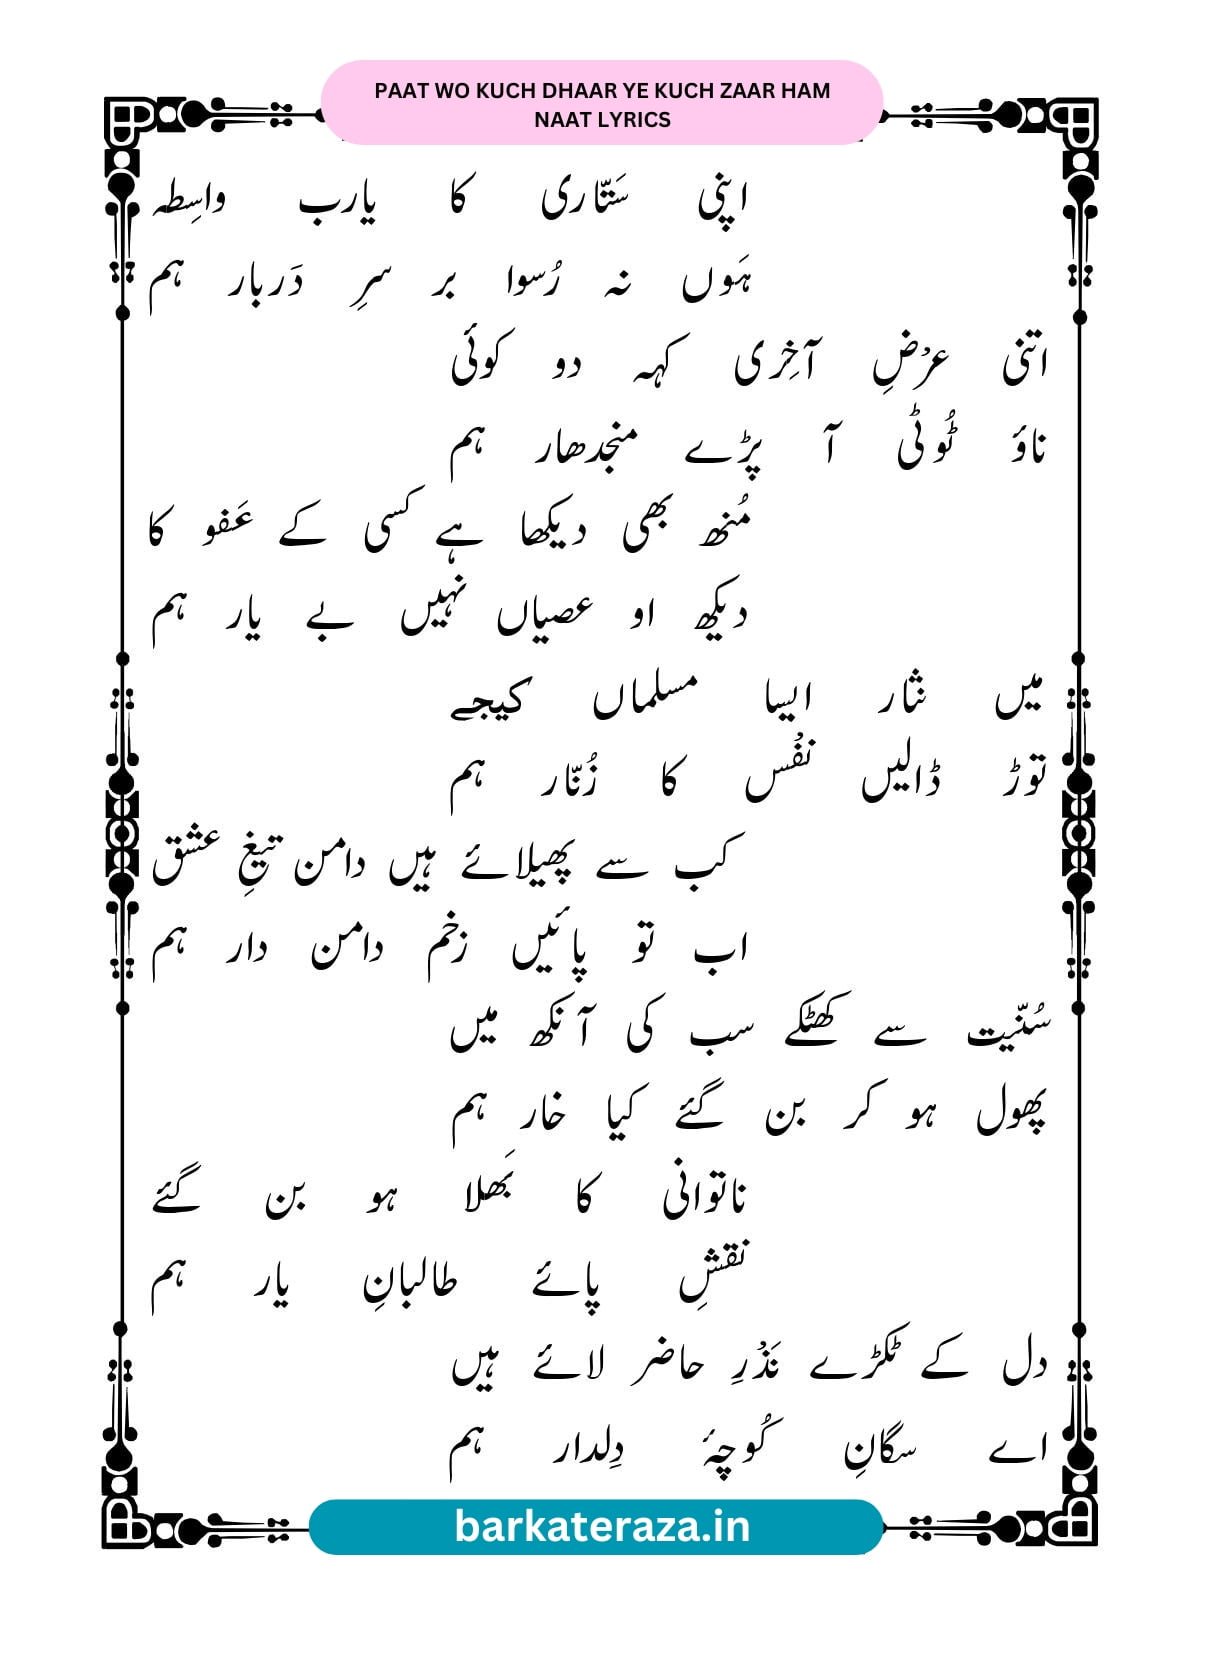 PAAT WO KUCH DHAAR YE KUCH ZAAR HAM
NAAT LYRICS
اپنی سَتّاری کا یارب واسِطہ
ہَوں نہ رُسوا بر سرِ دَربار ہم
اتنی عرْضِ آخِری کہہ دو کوئی
ناؤ ٹُوٹی آ پڑے منجدھار ہم
مُنھ بھی دیکھا ہے کسی کے عَفو کا
دیکھ او عصیاں نہیں بے یار ہم
میں نثار ایسا مسلماں کیجے
توڑ ڈالیں نفْس کا زُنّار ہم
کب سے پھیلائے ہیں دامن تیغِ عشق
اب تو پائیں زخم دامن دار ہم
سُنّیت سے کھٹکے سب کی آنکھ میں
پھول ہو کر بن گئے کیا خار ہم
ناتوانی کا بَھلا ہو بن گئے
نقشِ پائے طالبانِ یار ہم
دل کے ٹکڑے نَذْرِ حاضر لائے ہیں
اے سگانِ کُوچۂ دِلدار ہم
barkateraza.in